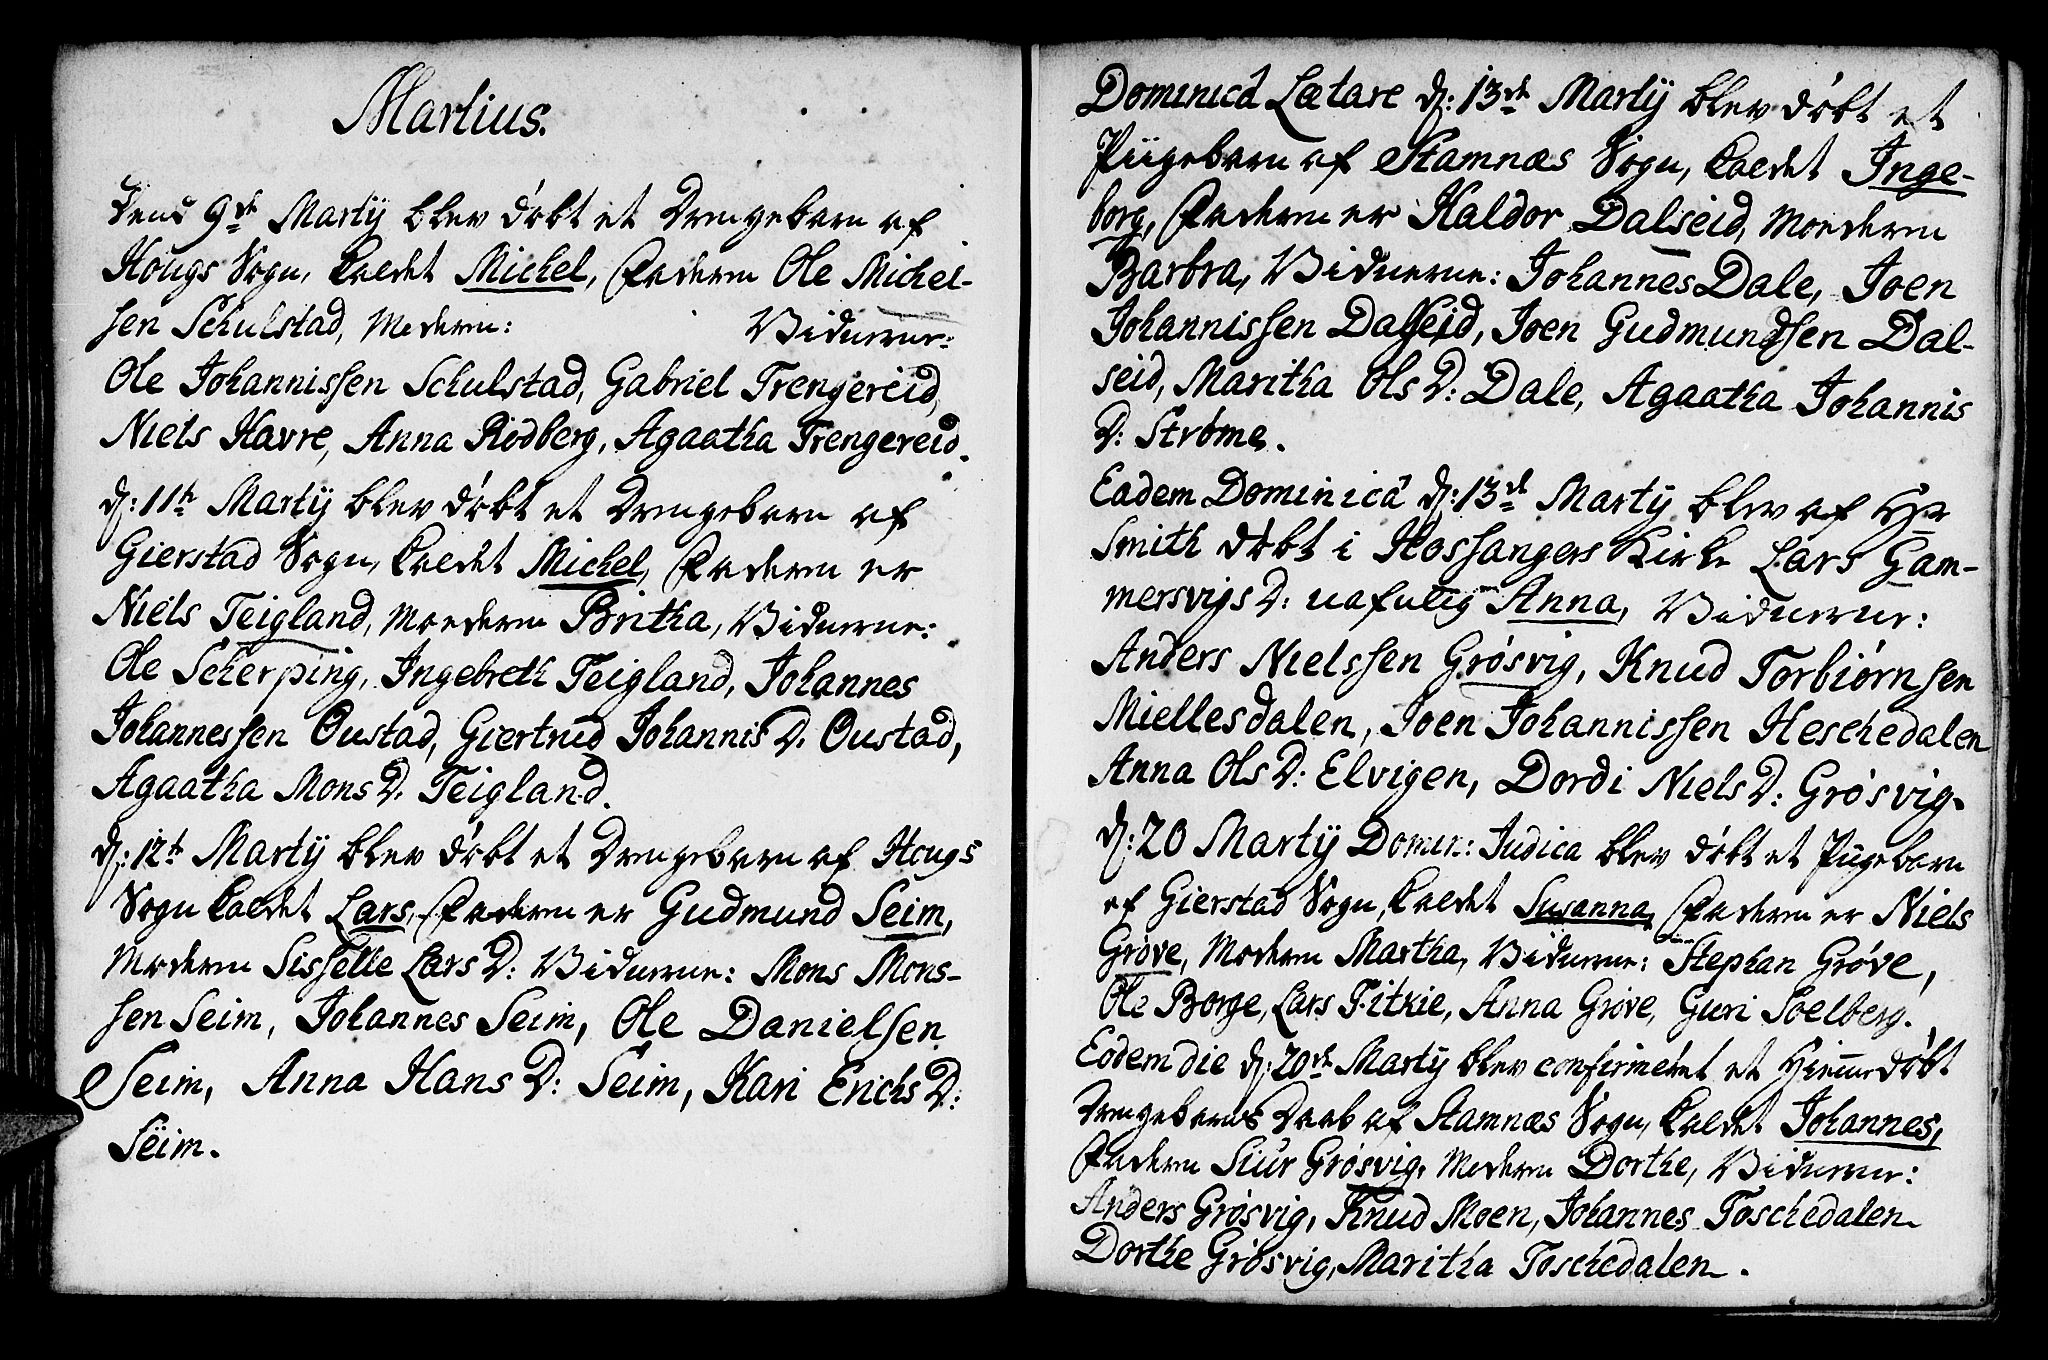 Martius.
Dend 9de Martÿ blev døbt et Drengebarn af
Hougs Sogn, kaldet Michel, Faderen Ole Michel-
sen Schulstad, Moderen: Vidnerne:
Ole Johannissen Schulstad, Gabriel Trengereid,
Niels Havre, Anna Rødberg, Agaatha Trengereid.
d: 11te Martÿ blev døbt et Drengebarn af
Gierstad Sogn, kaldet Michel, Faderen er
Niels Teigland, Moederen Britha, Vidnerne:
Ole Scherping, Ingebreth Teigland, Johannes
Johannessen Oustad, Giertrud Johannis D. Oustad,
Agaatha Mons D. Teigland.
d: 12te Martÿ blev døbt et Drengebarn af Hougs
Sogn kaldet Lars, Faderen er Gudmund Seim,
Moderen Sisselle Lars D: Vidnerne: Mons Mons-
sen Seim, Johannes Seim, Ole Danielsen
Seim, Anna Hans D: Seim, Kari Erichs D:
Seim.
Dominicâ Lætare d: 13de Martÿ blev døbt et
Piigebarn af Stamnæs Sogn, kaldet Inge-
borg, Faderen er Haldor Dalseid, Moederen
Barbra, Vidnerne: Johannes Dale, Joen
Johannissen Dalseid, Joen Gudmundsen Dal-
seid, Maritha Ols D: Dale, Agaatha Johannis
D: Strøme.
Eadem Dominicâ d: 13de Martÿ blev af Hr
Smith døbt i Hossangers Kirke Lars Gam-
mersvigs D: nafnlig Anna, Vidnerne:
Anders Nielssen Grøsvig, Knud Torbiørnsen
Miellesdalen, Joen Johannissen Heschedalen
Anna Ols D: Elvigen, Dordi Niels D: Grøsvig.
d: 20 Martÿ Domin: Judica blev døbt et Piigebarn
af Gierstad Sogn, kaldet Susanna, Faderen er Niels
Grøve, Moderen Martha, Vidnerne: Stephan Grøve,
Ole Borge, Lars Fitxie, Anna Grøve, Guri Soelberg.
Eodem die d: 20de Martÿ blev confirmeret et Hiemmedøbt
Drengebarns Daab af Stamnæs Sogn, kaldet Johannes,
Faderen Siur Grøsvig, Moderen Dorthe, Vidnerne:
Anders Grøsvig, Knud Moen, Johannes Toschedalen
Dorthe Grøsvig, Maritha Toschedalen.